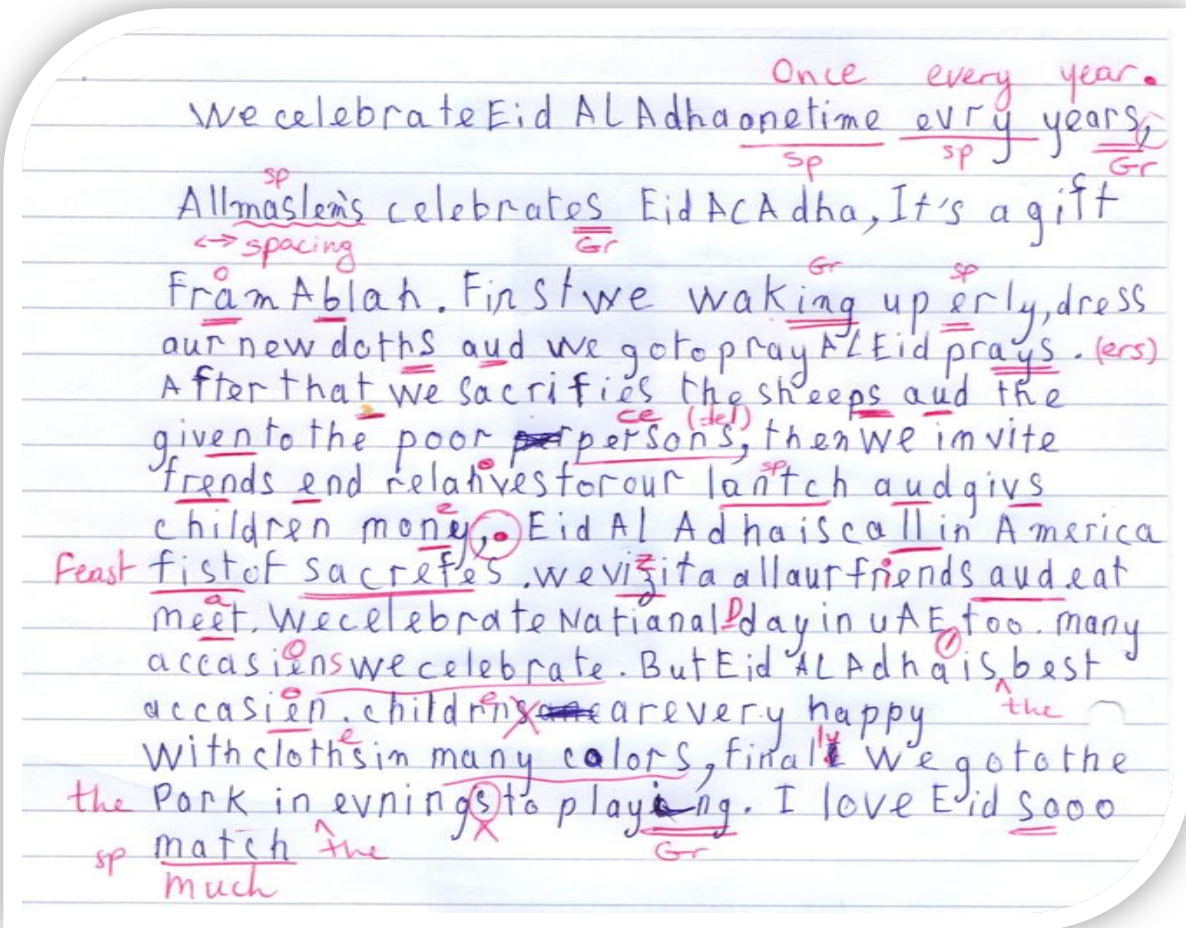 Once every year.
We celebrate Eid AL Adha onetime evry years,
sp sp Gr
sp
All maslems celebrates Eid ACAdha, It's a gift
<-> spacing Gr
o Gr sp
Fram Ablah. Finst we waking up erly, dress
aur new doths aud we go to pray ALEid prays. (ers)
After that we sacrifies the sheeps aud the
ce (del)
given to the poor persons, then we imvite
frends end relatives for our lantch aud givs
sp
children money, . Eid Al Adha is call in America
Feast fist of sacrefes. we vizita all aur friends aud eat
a
meet. We celebrate Natianal Dday in UAE too. many
accasiens we celebrate. But Eid AL Adha is best
o the
accasien. childrens are very happy
e ly
with cloths in many colors, final we go to the
the Park in evnings to playing. I love E'id sooo
sp match the Gr
much